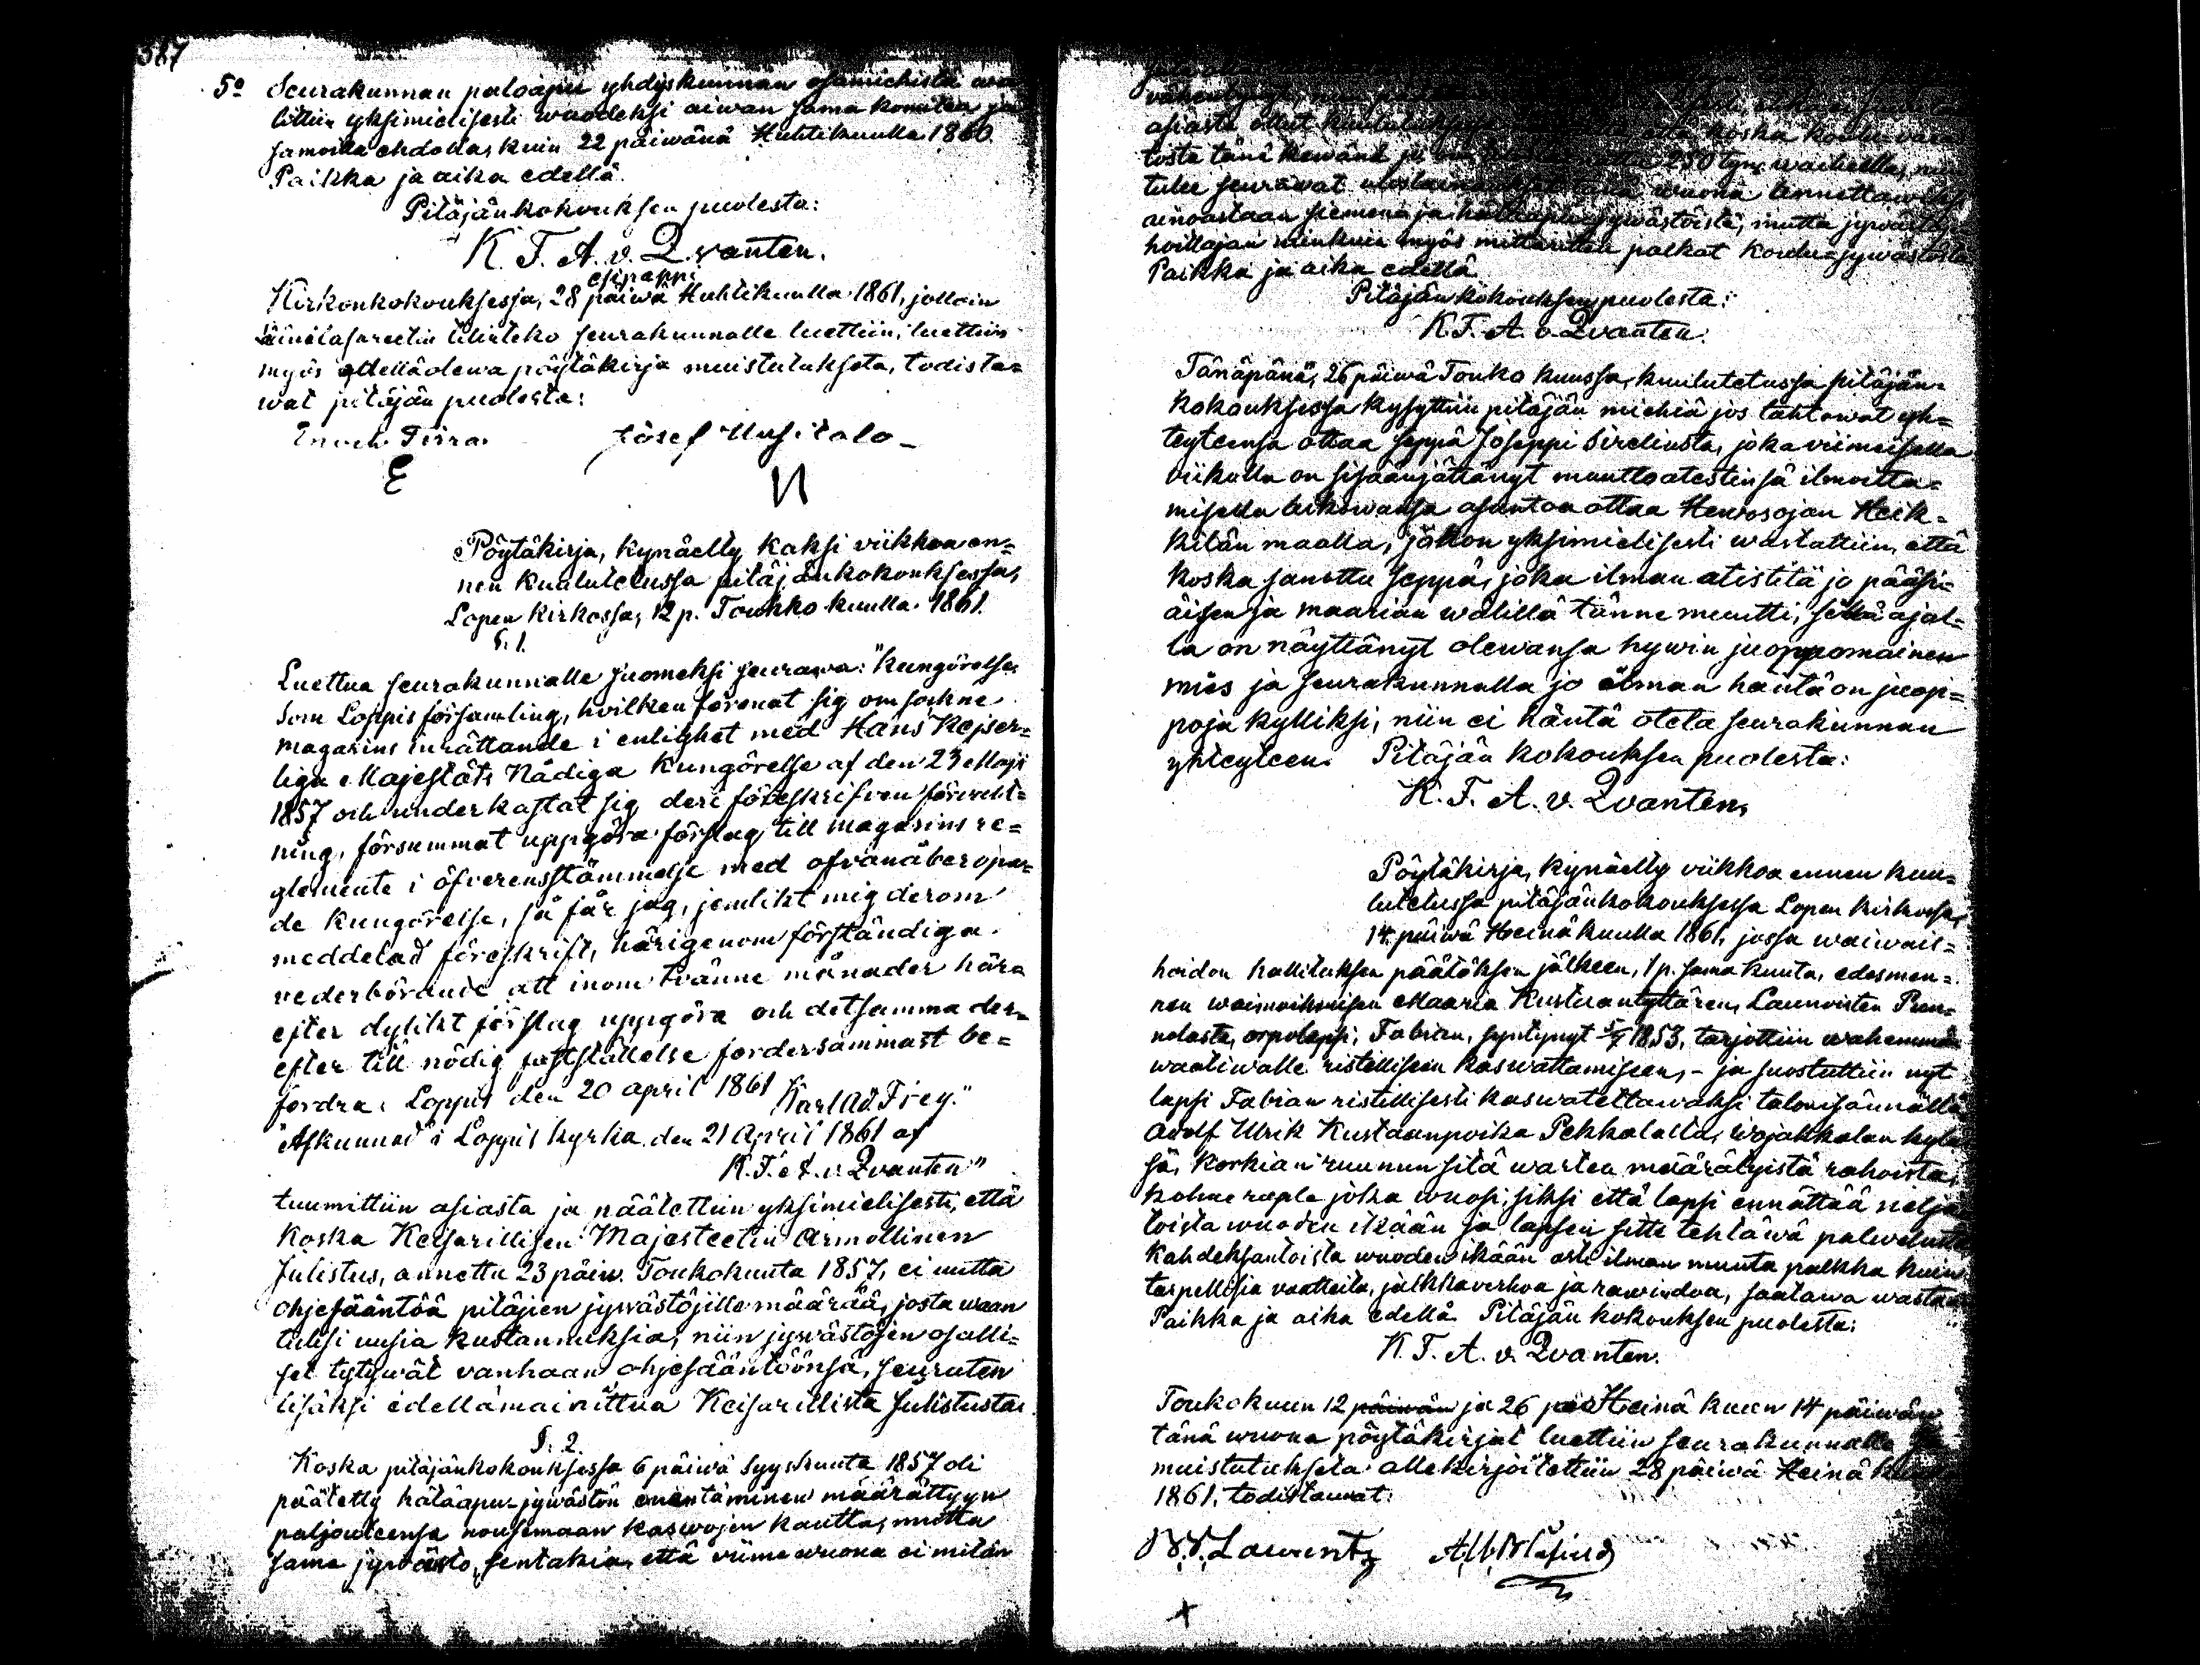 387
5º Seurakunnan paloapu yhdyskunnan osamiehistä wa
littiin yksimielisesti wuodeksi aiwan sama komitea ja
samoilla ehdoilla, kuin 22 päiwänä Huhtikuulla 1860.
Paikka ja aika edellä.
Pitäjänkokouksen puolesta:
K. F. A. v. Qvanten.
esipappi
Kirkonkokouksessa, 28 päiwä Huhtikuulla 1861, jolloin
lainalasareetin tilinteko seurakunnalle luettiin, luettiin
myös edelläolewa pöytäkirja muistutukseta, todista=
wat pitäjän puolesta:
Enoch Tirra. Josef Uusitalo
E U
Pöytäkirja, kynäelty kaksi viikkoa en=
nen kuulutetussa pitäjänkokouksessa,
Lopen kirkossa, 12 p. Toukkokuulla 1861.
§. 1.
Luettua seurakunnalle suomeksi seurawa: "Kungörelse
Som Loppis församling, hvilken förenat sig om sockne
magasins inrättande i enlighet med Hans Kejser=
liga Majestäts Nådiga Kungörelse af den 23 Maji
1857 och underkastat sig deri föreskrifven förvalt=
ning, försummat uppgöra förslag till magasins re=
glemente i öfverensstämmelse med ofvanåberopa=
de Kungörelse, så får jag, jemlikt mig derom
meddelad föreskrift, härigenom förständiga
vederbörande att inom tvänne månader här=
efter dylikt förslag uppgöra och detsamma der=
efter till nödig fastställelse fordersammast be=
fordra. Loppis den 20 april 1861 Karl Ad Frey."
"Afkunnad i Loppis kyrka den 21 April 1861 af
K. F. A. v. Qvanten"
tuumittiin asiasta ja päätettiin yksimielisesti, että
koska Keisarillisen Majesteetin Armollinen
Julistus, annettu 23 päiw. Toukokuuta 1857, ei uutta
ohjesääntöä pitäjien jywästöjille määrää, josta waan
tulisi uusia kustannuksia, niin jywästöjen osalli=
set tytywät vanhaan ohjesääntöönsä, seuraten
lisäksi edellämainittua Keisarillista Julistusta.
§. 2.
Koska pitäjänkokouksessa 6 päiwä Syyskuuta 1857 oli
päätetty hätäapu-jywästön enentäminen määrättyyn
paljouteensa nousemaan kaswojen kautta, mutta
sama jywästö, sentakia, että viime wuona ei mitän
asiasta ollut koska
tosta tänä kewänä 250 tyn. waiheella, niin
tulee seurawat tänä wuona annettawaksi
ainoastaan siemenä ja hätäapu-jywästöistä, mutta jywästö
hoittajan niinkuin myös mittaritten palkat Koulu-jywästöstä
Paikka ja aika edellä
Pitäjän kokouksen puolesta:
K. F. A. v. Qvanten.
Tänäpänä, 26 päiwä Touko kuussa, kuulutetussa pitäjän=
kokouksessa kysyttiin pitäjän miehiä jos tahtowat yh=
teyteensä ottaa seppä Joseppi Sireliusta, joka viimeisellä
viikolla on sisäänjättänyt muuttoatestinsä ilmoitta=
misella aikowansa asuntoa ottaa Hewosojan Heik=
kilän maalla, jolloin yksimielisesti wastattiin, että
koska sanottu seppä, joka ilman atistitä jo pääsi=
äisen ja maarian wälillä tänne muutti, sillä ajal=
la on näyttänyt olewansa hywin juoppomainen
mies ja seurakunnalla jo ilman häntä on juop=
poja kylliksi, niin ei häntä oteta seurakunnan
yhteyteen. Pitäjän kokouksen puolesta:
K. F. A. v. Qvanten,
Pöytäkirja, kynäelty viikkoa ennen kuu=
lutetussa pitäjänkokouksessa Lopen kirkossa,
14 päiwä Heinäkuulla 1861, jossa waiwais=
hoidon hallituksen päätöksen jälkeen, 1 p. sama kuuta, edesmen=
nen waimoihmisen Maaria Kustaantyttären, Launoisten Pun=
nolasta, orpolapsi, Fabian, syntynyt 1853, tarjottiin wähemmän
waativalle ristilliseen kaswattamiseen, – ja suostuttiin nyt
lapsi Fabian ristillisesti kaswatettawaksi talonisännällä
Adolf Ulrik Kustaanpoika Pekkalalla, Wojakkalan kyläs
sä, korkian ruunun sitä warten määrätyistä rahoista,
kolme ruplaa joka wuosi, siksi että lapsi ennättää nelja
toista wuoden ikään ja lapsen sitte tehtäwä palwelusta
kahdeksantoista wuoden ikään asti ilman muuta palkka kuin
tarpellisia vaatteita, jalkkaverhoa ja rawindoa, saatawa wastaan
Paikka ja aika edellä. Pitäjän kokouksen puolesta:
K. F. A. v. Qvanten.
Toukokuun 12 päiwän ja 26 p. ja Heinä kuun 14 päiwän
tänä wuona pöytäkirjat luettiin seurakunnalle
muistutukseta allekirjoitettiin 28 päiwä Heinä kuu
1861, todistawat:
Laurentz